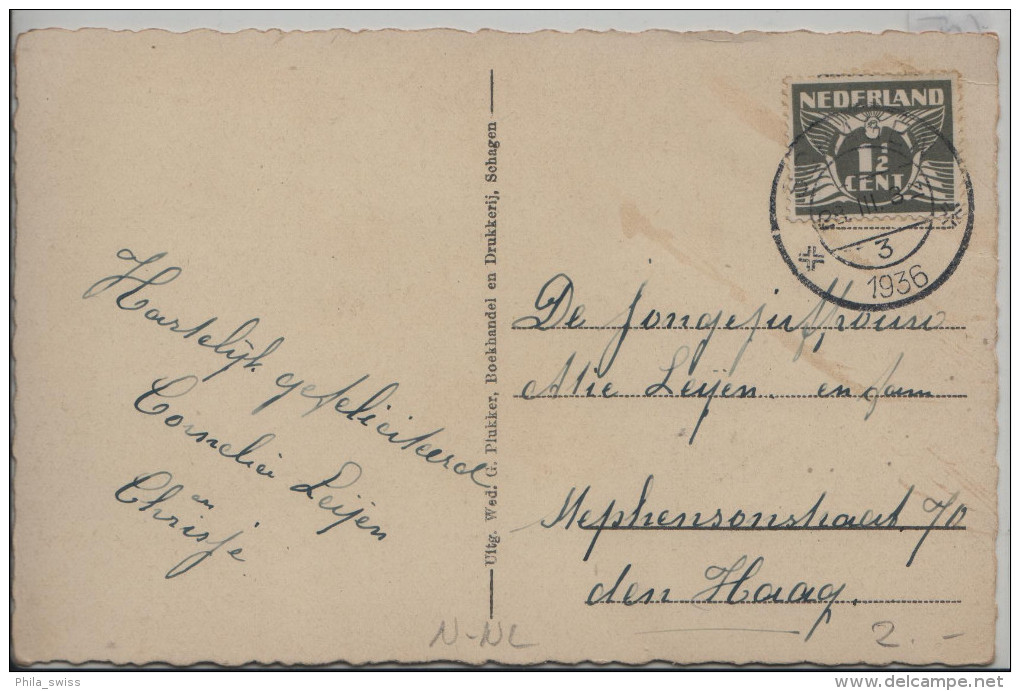 NEDERLAND
1½
CENT
III
3
1936
Hartelijk gefeliciteerd
Cornelia Leijen
en
Chrisje
Uitg. Wed. G. Plukker, Boekhandel en Drukkerij, Schagen
De Jongejuffrouw
Alie Leijen. en fam
Stephensonstraat 70
den Haag.
N-NL
2.-
Phila_swiss
www.delcampe.net